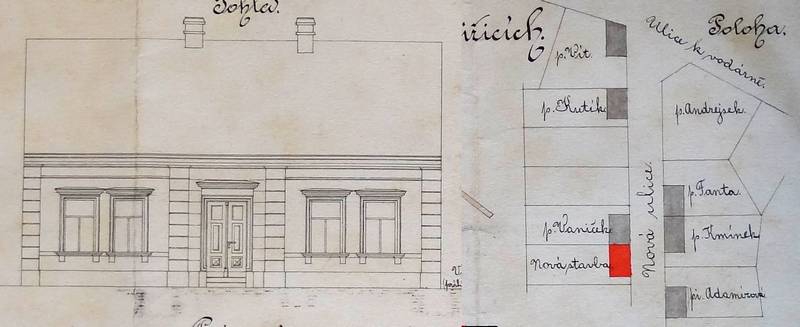 Pohled.
Poloha.
Ulice k vodárně.
p. Vít.
p. Kutík
p. Andrejsek.
Nová ulice.
p. Fanta.
p. Vaníček
p. Kmínek
Nová stavba
pí. Adamírová